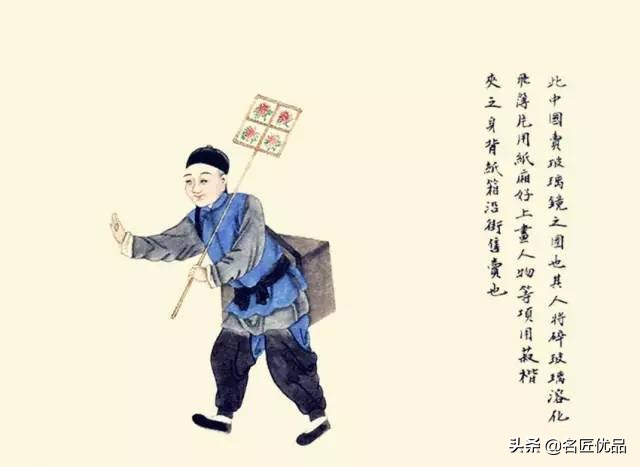 此中國賣玻璃鏡之圖也其人將碎玻璃溶化
飛薄片用紙廂好上畫人物等項用菽楷
夾之身背紙箱沿街售賣也
头条 @名匠优品